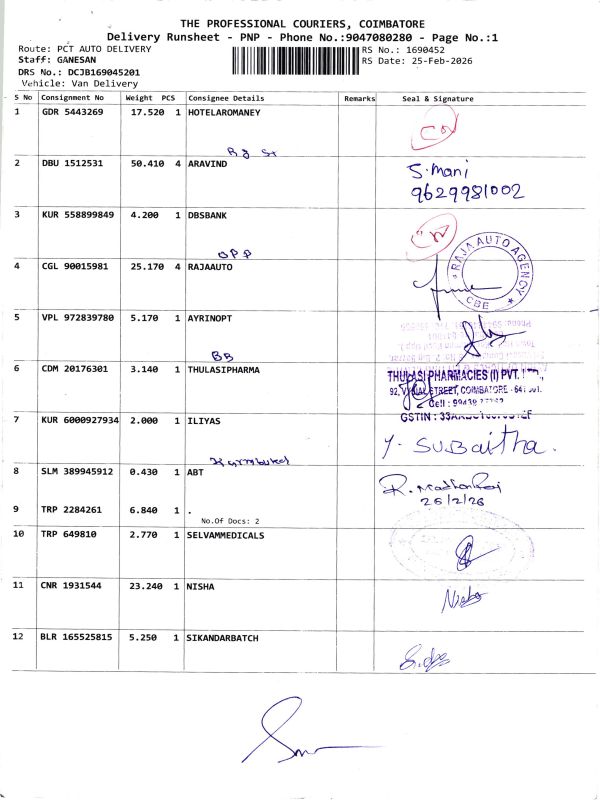 THE PROFESSIONAL COURIERS, COIMBATORE
Delivery Runsheet - PNP - Phone No.:9047080280 - Page No.:1
Route: PCT AUTO DELIVERY
RS No.: 1690452
Staff: GANESAN
RS Date: 25-Feb-2026
DRS No.: DCJB169045201
Vehicle: Van Delivery
S No Consignment No Weight PCS Consignee Details Remarks Seal & Signature
1 GDR 5443269 17.520 1 HOTELAROMANEY
2 DBU 1512531 50.410 4 ARAVIND S. Mani
9629981002
3 KUR 558899849 4.200 1 DBSBANK
OPP
4 CGL 90015981 25.170 4 RAJAAUTO RAJA AUTO AGENCY CBE
5 VPL 972839780 5.170 1 AYRINOPT
BB
6 CDM 20176301 3.140 1 THULASIPHARMA THULASI PHARMACIES (I) PVT.
STREET, COIMBATORE
Cell :
GSTIN :
7 KUR 6000927934 2.000 1 ILIYAS Y. SUBaitha.
8 SLM 389945912 0.430 1 ABT
26/2/26
9 TRP 2284261 6.840 1 .
No.Of Docs: 2
10 TRP 649810 2.770 1 SELVAMMEDICALS
11 CNR 1931544 23.240 1 NISHA
12 BLR 165525815 5.250 1 SIKANDARBATCH